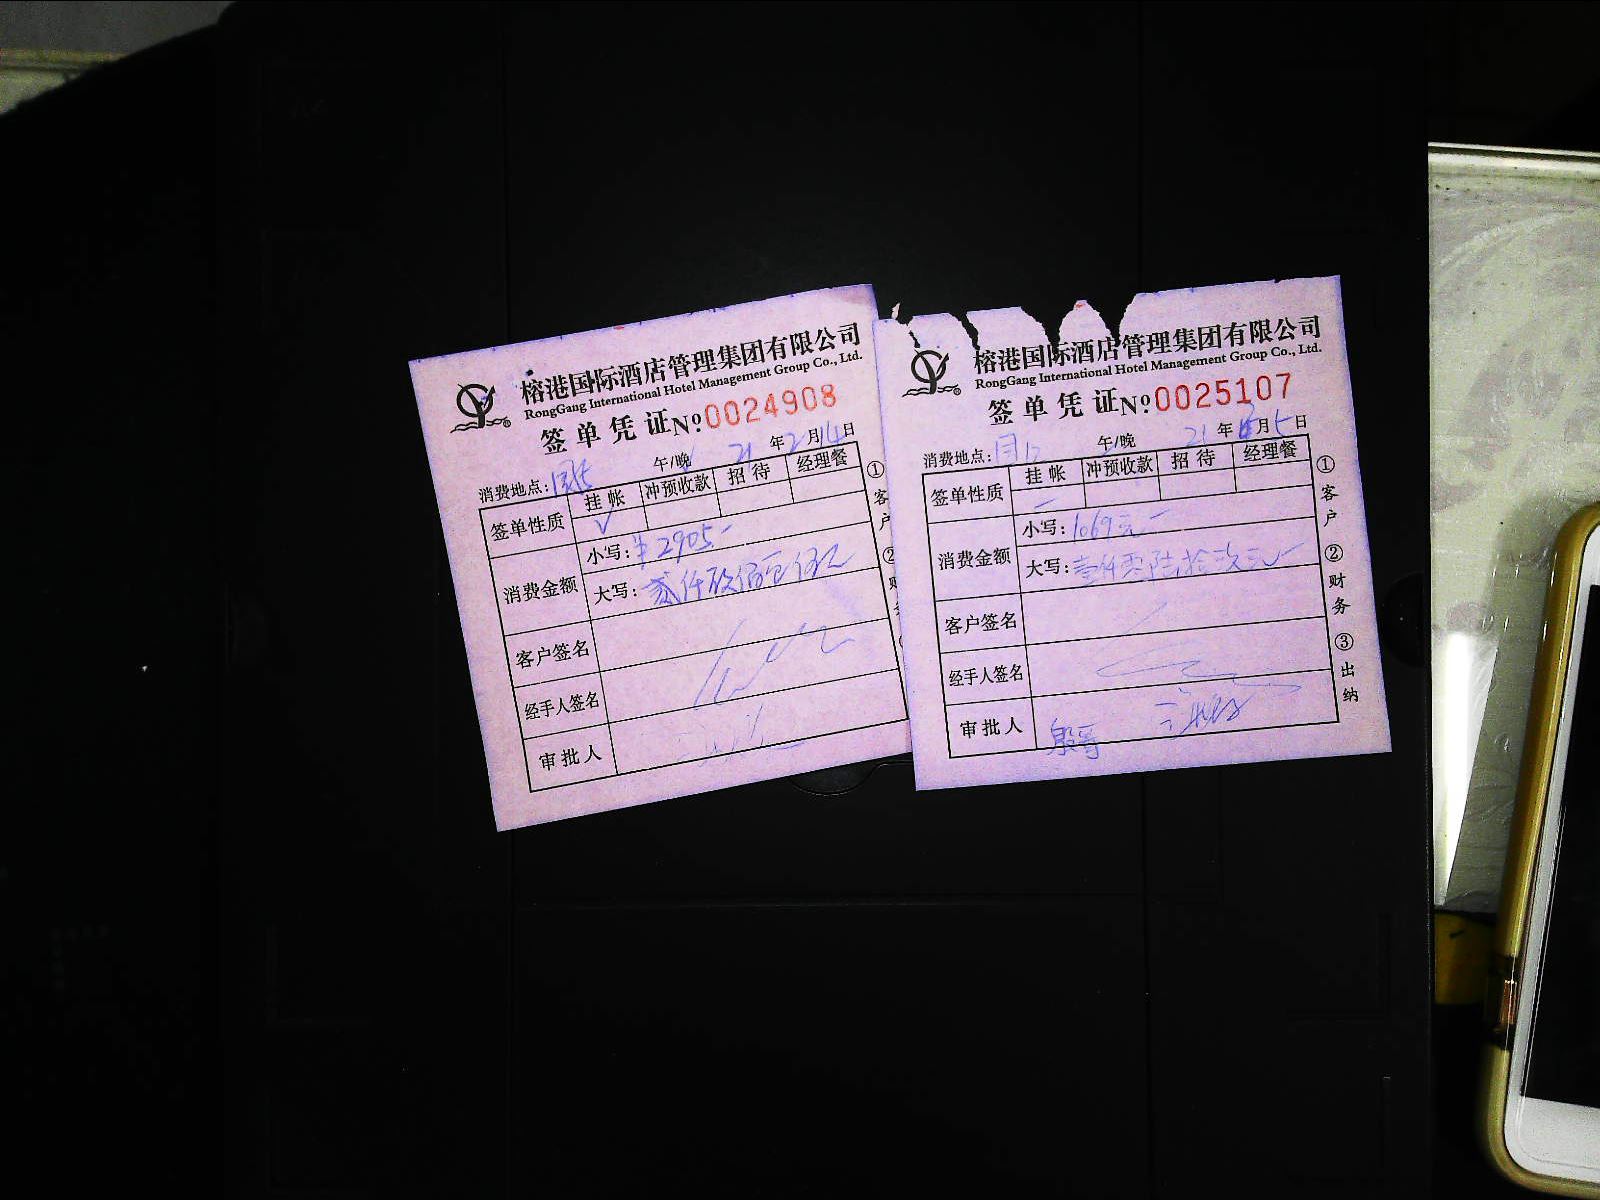 榕港国际酒店管理集团有限公司
RongGang International Hotel Management Group Co., Ltd.
签单凭证 No 0024908
21年2月14日
消费地点: 午/晚
签单性质 挂帐 冲预收款 招待 经理餐
√
消费金额 小写: ¥2905.-
大写: 贰仟玖佰零伍元
客户签名
经手人签名
审批人
① 客户 ② 财务
榕港国际酒店管理集团有限公司
RongGang International Hotel Management Group Co., Ltd.
签单凭证 No 0025107
21年 月5日
消费地点: 午/晚
签单性质 挂帐 冲预收款 招待 经理餐
消费金额 小写: 1069元-
大写: 壹仟零陆拾玖元
客户签名
经手人签名
审批人
① 客户 ② 财务 ③ 出纳